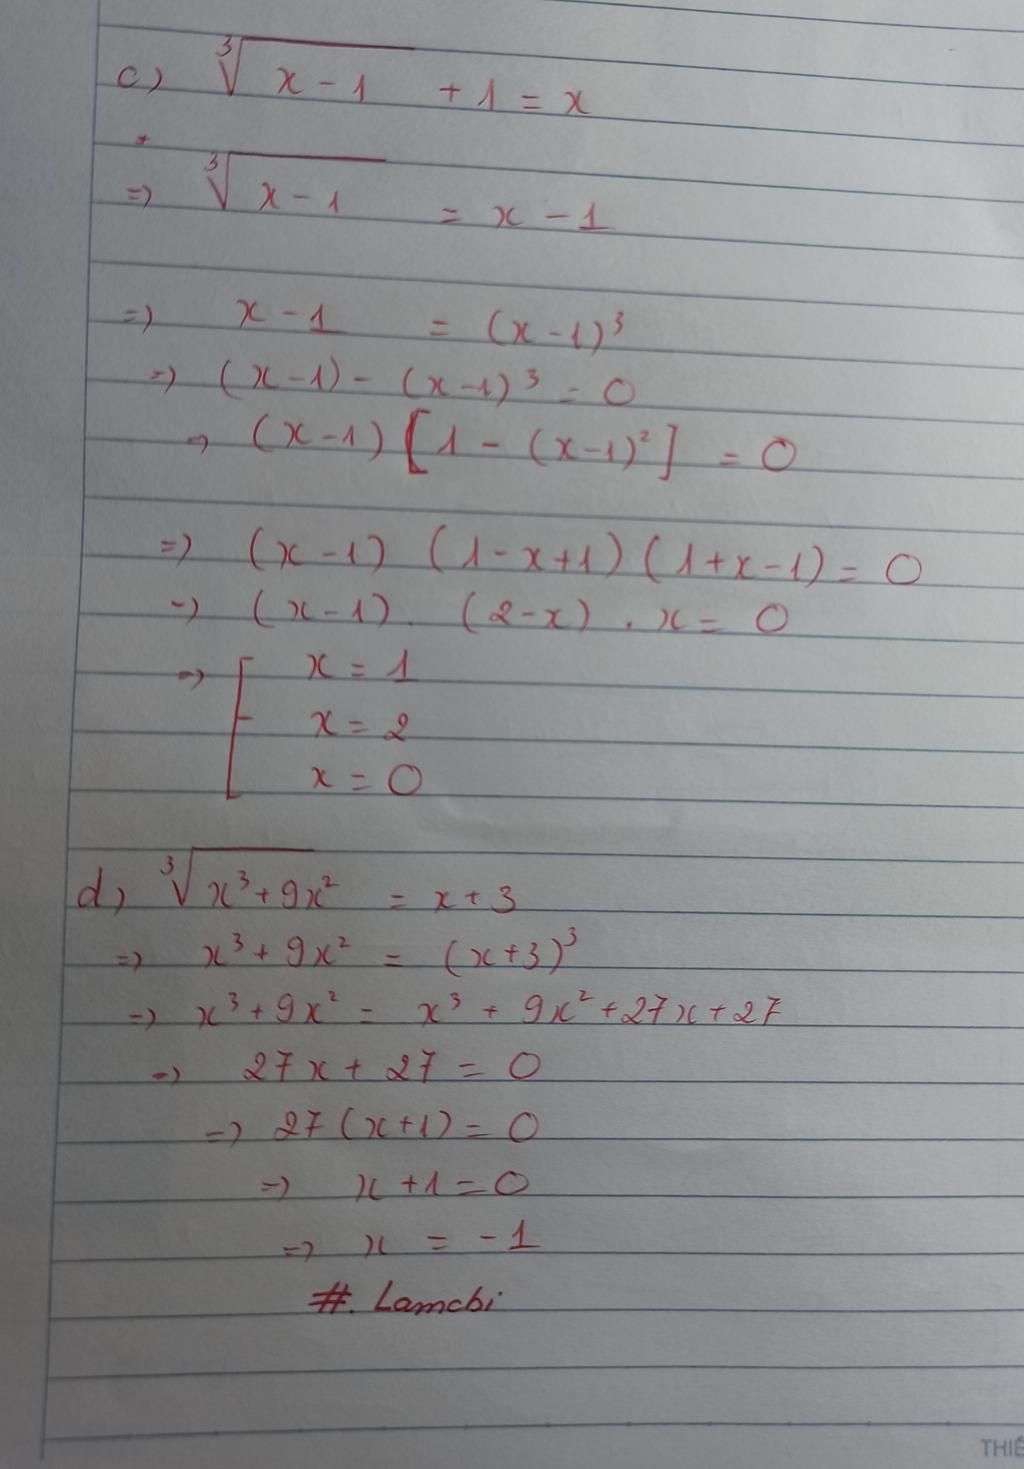 c) ∛(x - 1) + 1 = x
=> ∛(x - 1) = x - 1
=> x - 1 = (x - 1)³
=> (x - 1) - (x - 1)³ = 0
=> (x - 1) [1 - (x - 1)²] = 0
=> (x - 1) (1 - x + 1) (1 + x - 1) = 0
=> (x - 1) . (2 - x) . x = 0
=> [ x = 1
x = 2
x = 0
d) ∛(x³ + 9x²) = x + 3
=> x³ + 9x² = (x + 3)³
=> x³ + 9x² = x³ + 9x² + 27x + 27
=> 27x + 27 = 0
=> 27 (x + 1) = 0
=> x + 1 = 0
=> x = -1
#. Lamchi
THIẾ